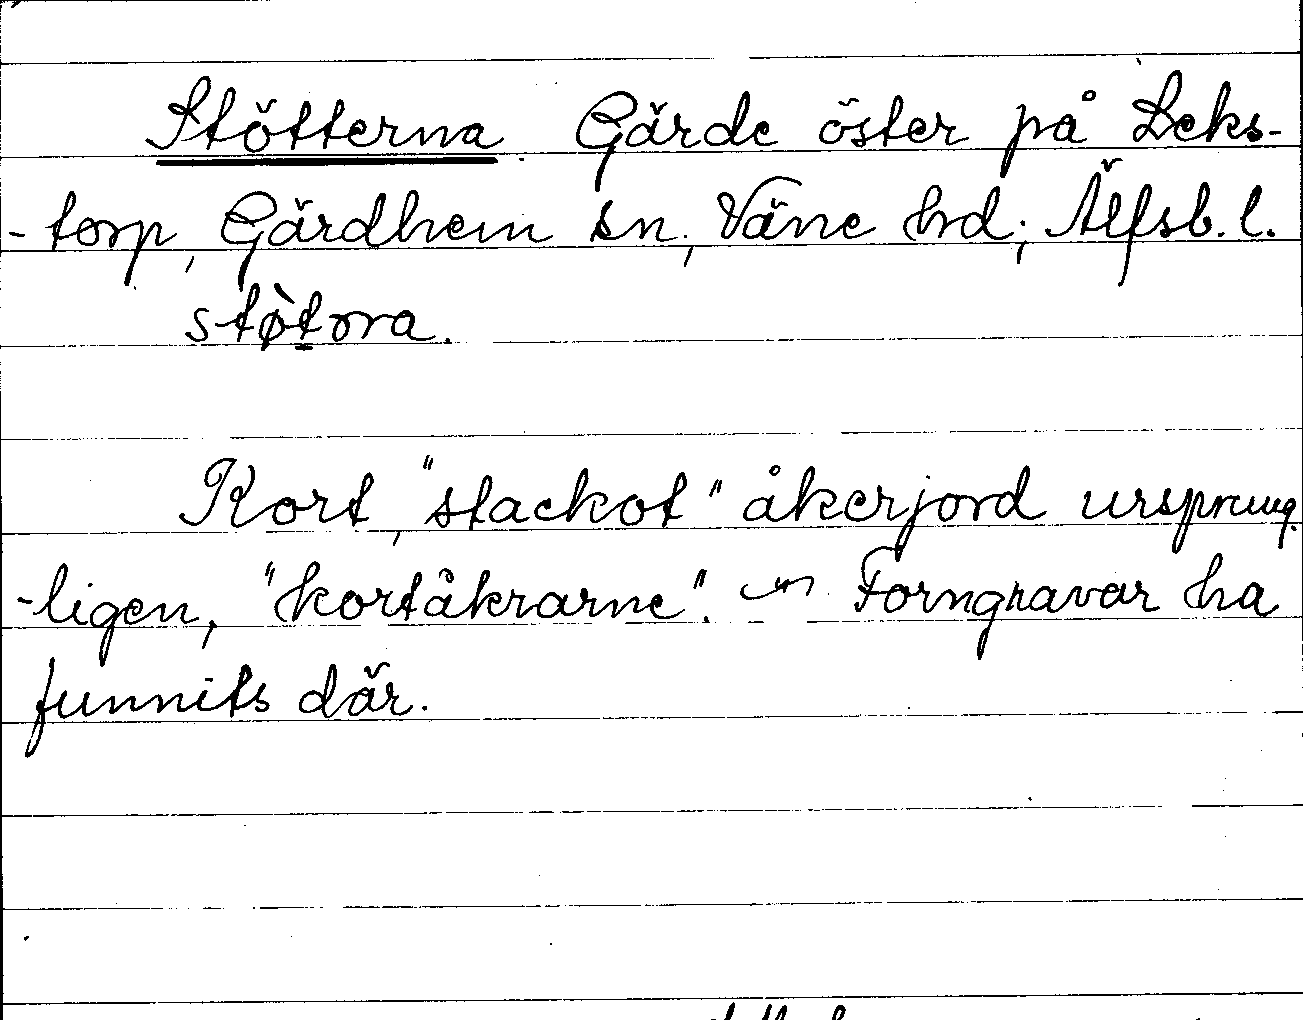 Stötterna. Gärde öster på Leks-
-torp, Gärdhem sn, Väne hd; Älfsb. l.
stø̀tora.
Kort, "stackot" åkerjord ursprung.
-ligen, "kortåkrarne". ~ Forngravar ha
funnits där.